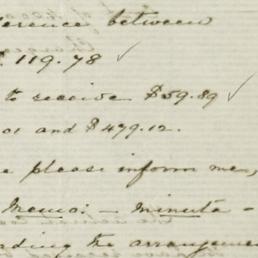 erence between
. 119.78 ✓
to receive $59.89 ✓
01 and $479.12.
e please inform me,
Memo: – Minuta –
ding the arrangemen